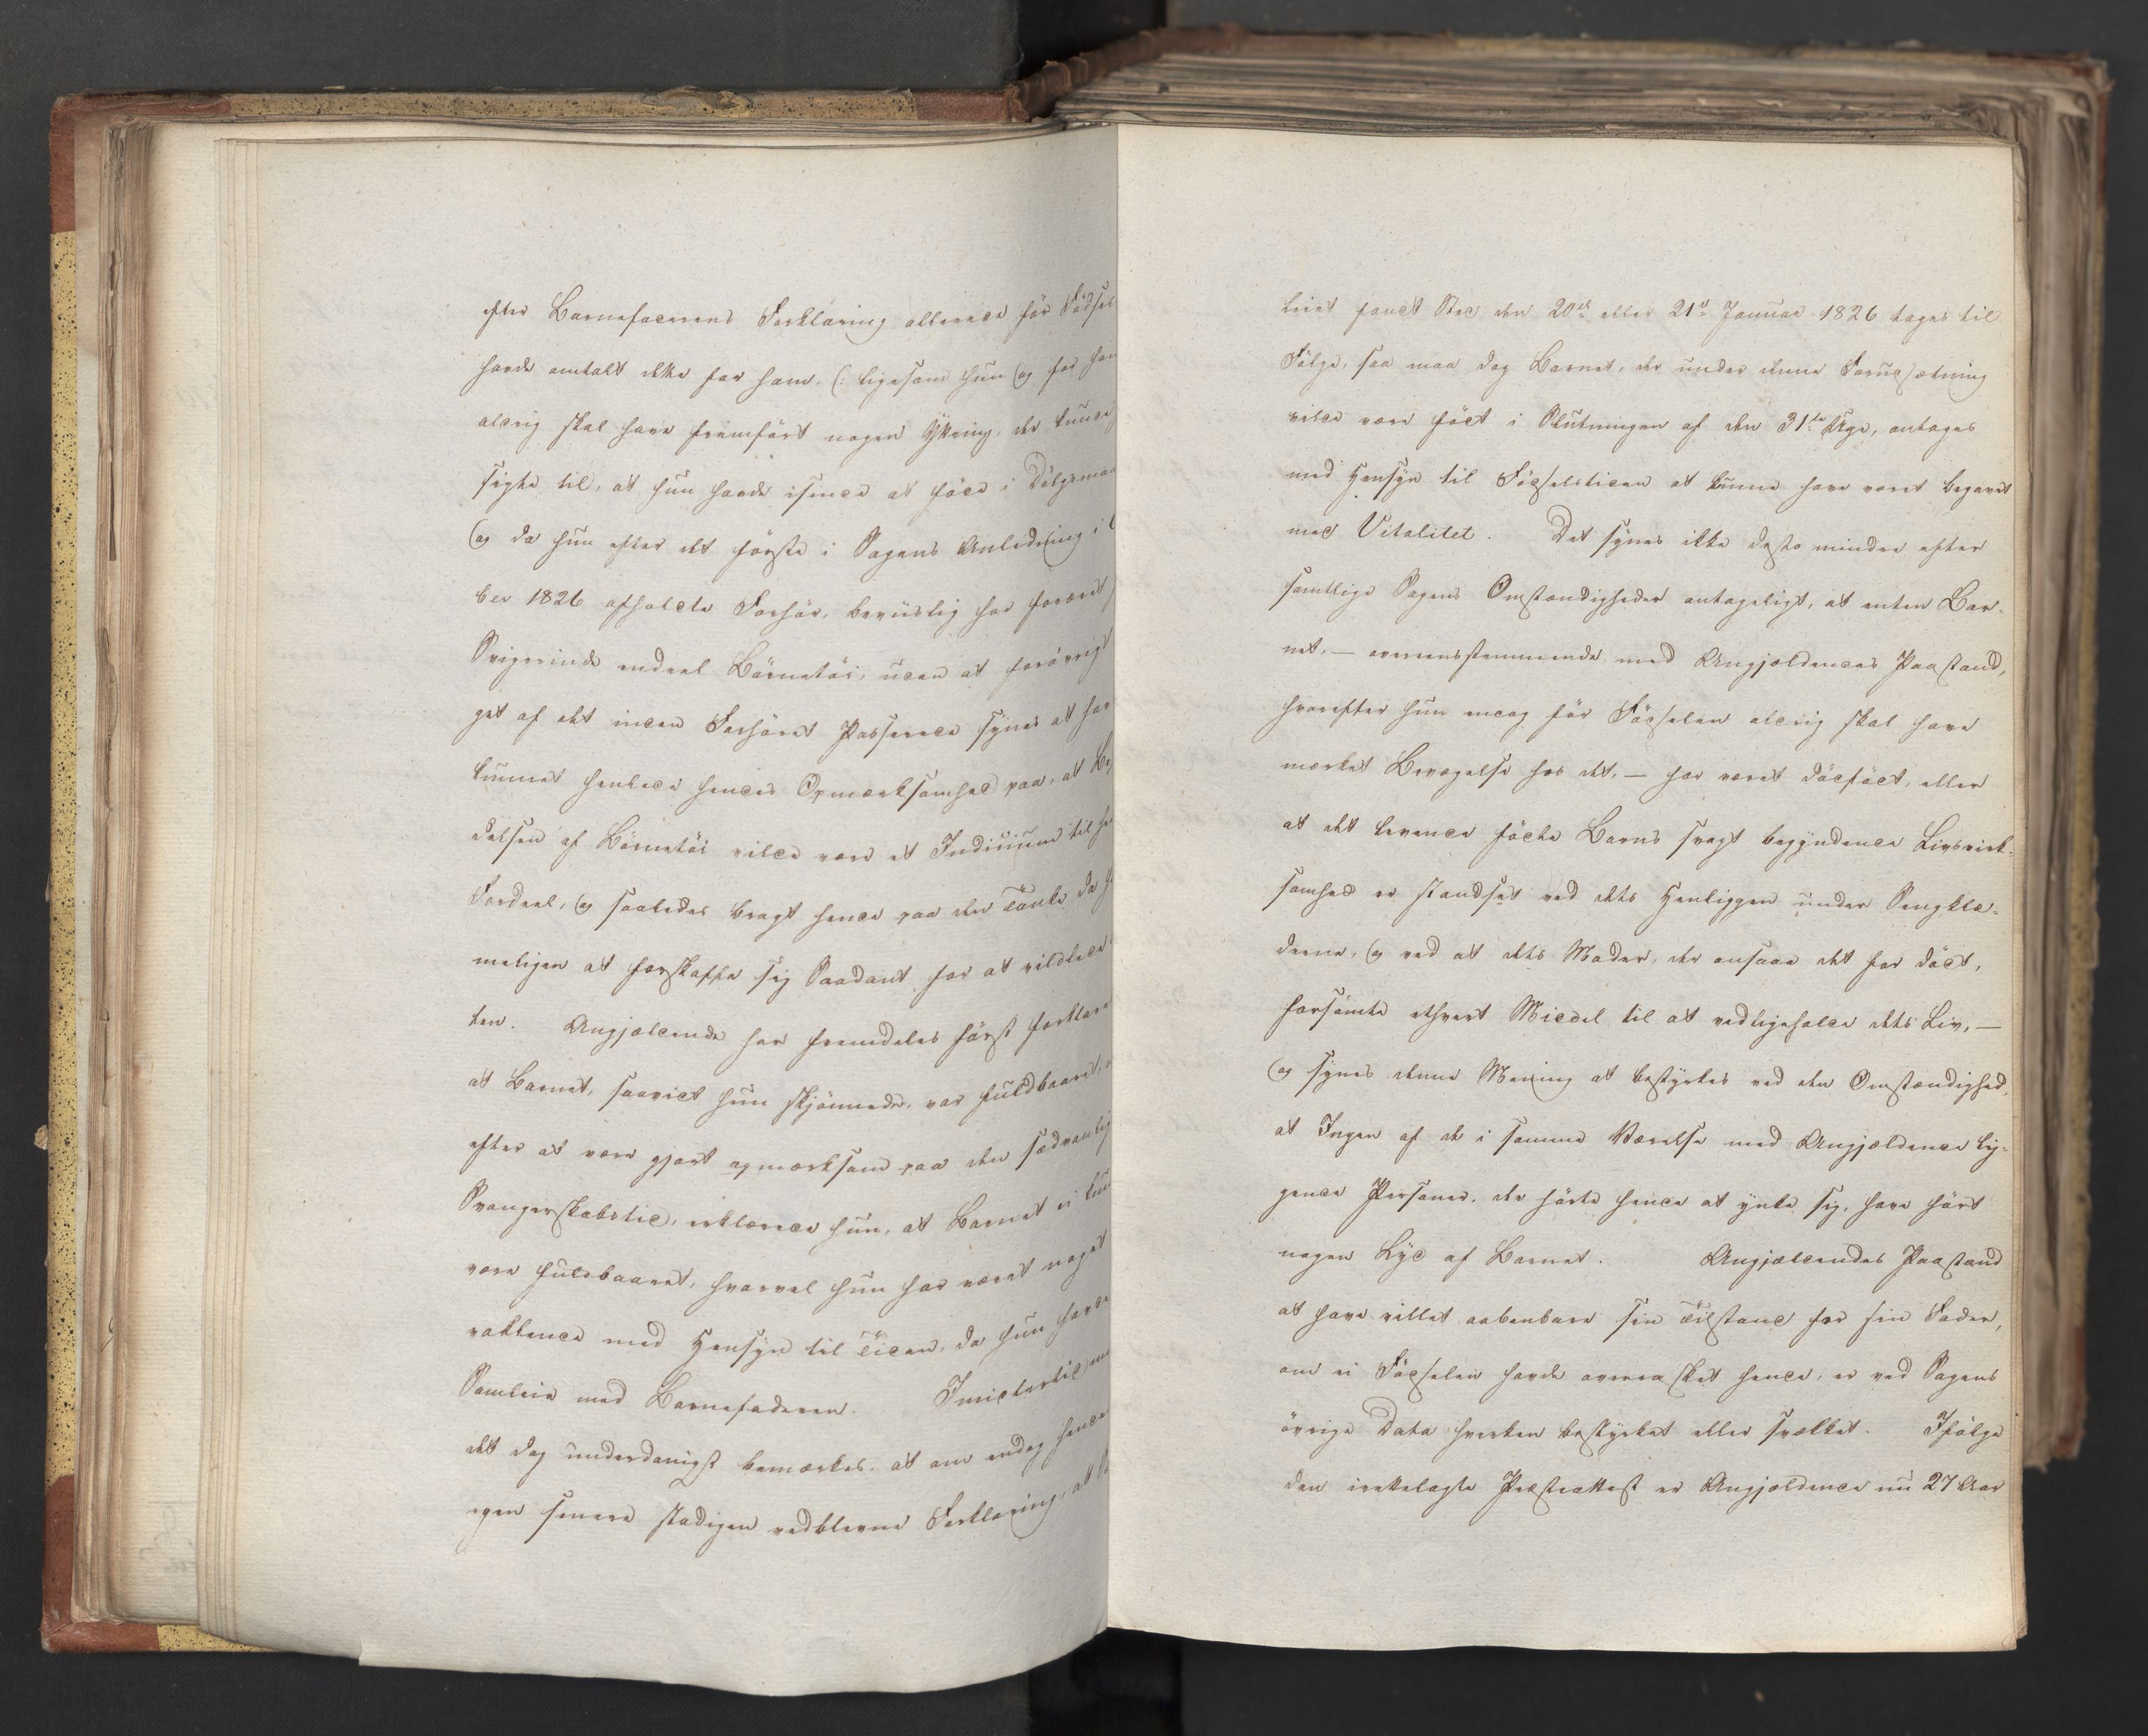 efter Barnefaderens Forklaring allerede før Fødsel
havde omtalt dette for ham, (: ligesom hun og for ham
aldrig skal have fremført nogen Yttring, der kunde
sigte til, at hun havde isinde at føde i Dølgsmaal
og da hun efter det første i Sagens Anledning i
ber 1826 afholdte Forhør, beviislig har foræret
Svigerinde endeel Börnetöi, uden at forövrigt
get af det inden Forhöret Passerede synes at have
kunnet henlede hendes Opmærksomhed paa, at Be
delsen af Börnetöi vilde være et Indicium til he
Fordeel, og saaledes bragt hende paa den Tanke da
meligen at forskaffe sig Saadant for at vildlede
ten. Angjældende har fremdeles först forklaret
at Barnet, saavidt hun skjönnede, var fuldbaaret,
efter at være gjort opmærksom paa den sædvanlig
Svangerskabstid, erklærede hun, at Barnet ei kun
være fuldbaaret, hvorvel hun har været noget
vaklende med Hensyn til Tiden, da hun havde
Samleie med Barnefaderen. Imidlertid maa
det dog underdanigst bemærkes, at om endog hendes
egen senere stadigen vedblevne Forklaring, at
leiet fandt Sted den 20de eller 21de Januar 1826 tages til
Fölge, saa maa dog Barnet, der under denne Forudsætning
vilde være född i Slutningen af den 31te Uge, antages
med Hensyn til Födselstiden at kunne have været begavet
med Vitalitet. Det synes ikke desto mindre efter
samtlige Sagens Omstændigheder antageligt, at enten Bar-
net, — overeensstemmende med Angjældendes Paastand,
hvorefter hun endog för Födselen aldrig skal have
mærket Bevægelse hos det, — har været dödfödt, eller
at det levende födte Barns svagt begyndende Livsvirk-
somhed er standset ved dets Henliggen under Sengklæ-
derne, og ved at dets Moder, der ansaae det for dödt,
forsömte ethvert Middel til at vedligeholde dets Liv, —
og synes denne Mening at bestyrkes ved den Omstændighed,
at Ingen af de i samme Værelse med Angjældende lig-
gende Personer, der hörte hende at ynke sig, have hört
nogen Lyd af Barnet. Angjældendes Paastand
at have villet aabenbare sin Tilstand for sin Fader,
om ei Födselen havde overrasket hende, er ved Sagens
övrige Data hverken bestyrket eller svækket. Ifölge
den irettelagte Præsteattest er Angjældende nu 27 Aar